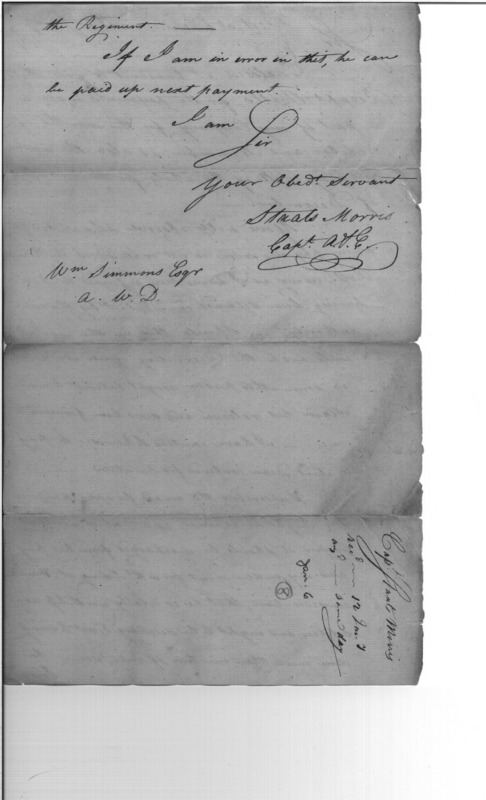 the Regiment. —
If I am in error in this, he can
be paid up next payment.
I am Sir
Your Obedt. Servant
Staats Morris
Capt. A&E.
Wm Simmons Esqr
a. W. D.
Capt Staats Morris
Recd — 12 Jan. y
— same day
Jan: 6
8